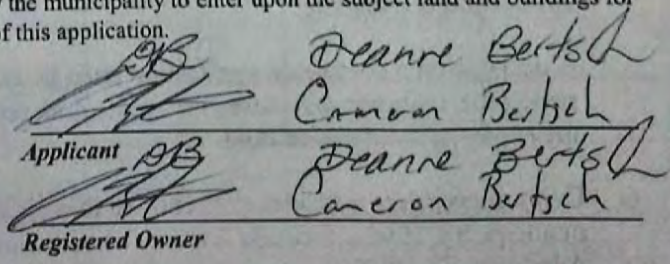 the municipality to enter upon the subject land and buildings for
of this application.
DB Deanne Bertsch
Cameron Bertsch
Applicant
DB Deanne Bertsch
Cameron Bertsch
Registered Owner